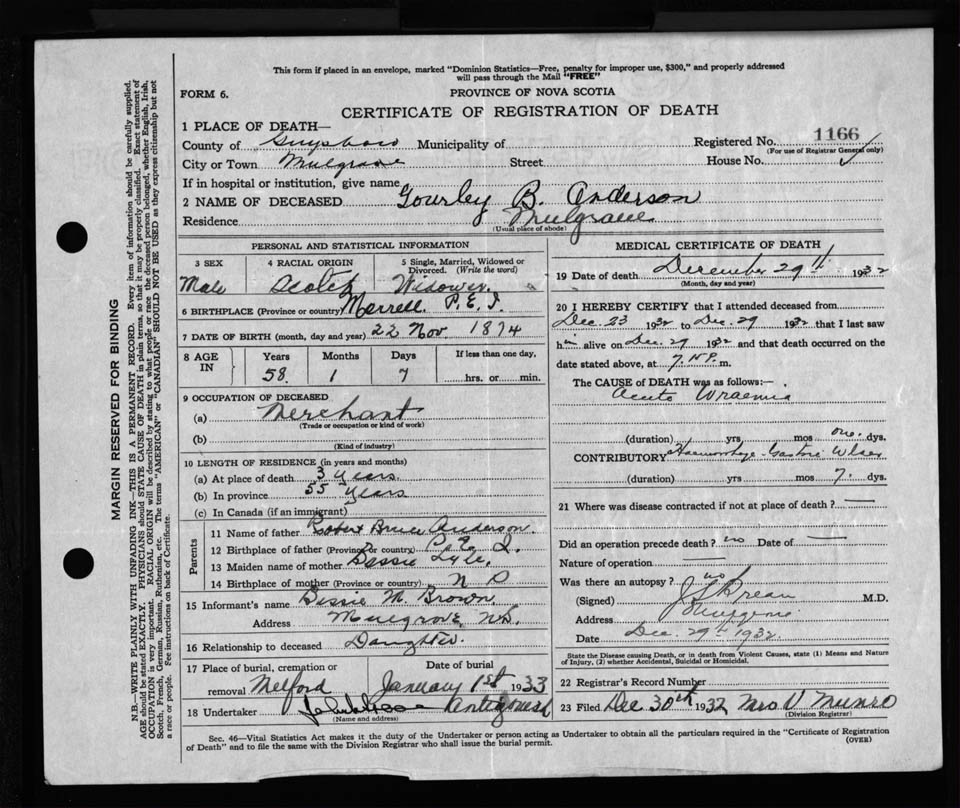 This form if placed in an envelope, marked "Dominion Statistics—Free, penalty for improper use, $300," and properly addressed
will pass through the Mail "FREE"
FORM 6.
PROVINCE OF NOVA SCOTIA
CERTIFICATE OF REGISTRATION OF DEATH
1 PLACE OF DEATH—
Registered No. 1166
(For use of Registrar General only)
County of Guysboro Municipality of
City or Town Mulgrave Street House No.
If in hospital or institution, give name
2 NAME OF DECEASED Gourley B. Anderson
Residence Mulgrave
(Usual place of abode)
PERSONAL AND STATISTICAL INFORMATION
3 SEX 4 RACIAL ORIGIN 5 Single, Married, Widowed or Divorced. (Write the word)
Male Scotch Widower
6 BIRTHPLACE (Province or country) Morrell P.E.I.
7 DATE OF BIRTH (month, day and year) 22 Nov. 1874
8 AGE IN Years Months Days If less than one day,
58 1 7 hrs. or min.
9 OCCUPATION OF DECEASED
(a) Merchant
(Trade or occupation or kind of work)
(b)
(Kind of industry)
10 LENGTH OF RESIDENCE (in years and months)
(a) At place of death 3 Years
(b) In province 55 Years
(c) In Canada (if an immigrant)
Parents
11 Name of father Robert Bruce Anderson
12 Birthplace of father (Province or country) P.E.I.
13 Maiden name of mother Bessie Lyle.
14 Birthplace of mother (Province or country) N S
15 Informant's name Bessie M. Brown
Address Mulgrove, N.S.
16 Relationship to deceased Daughter
17 Place of burial, cremation or removal Melford
Date of burial January 1st 1933
18 Undertaker Antigonish
(Name and address)
MEDICAL CERTIFICATE OF DEATH
19 Date of death December 29th 1932
(Month, day and year)
20 I HEREBY CERTIFY that I attended deceased from
Dec. 23 1932 to Dec. 29 1932 that I last saw
him alive on Dec. 29 1932 and that death occurred on the
date stated above, at 7. P. m.
The CAUSE OF DEATH was as follows:—
Acute Uraemia
(duration) yrs mos one. dys.
CONTRIBUTORY Haemorrhage - Gastric Ulcer
(duration) yrs mos 7. dys.
21 Where was disease contracted if not at place of death?
Did an operation precede death? no Date of
Nature of operation
Was there an autopsy? no
(Signed) M.D.
Address
Date Dec. 29th 1932.
State the Disease causing Death, or in death from Violent Causes, state (1) Means and Nature
of Injury, (2) whether Accidental, Suicidal or Homicidal.
22 Registrar's Record Number
23 Filed Dec 30th 1932 Mrs V Munro
(Division Registrar)
Sec. 46—Vital Statistics Act makes it the duty of the Undertaker or person acting as Undertaker to obtain all the particulars required in the "Certificate of Registration
of Death" and to file the same with the Division Registrar who shall issue the burial permit.
(OVER)
MARGIN RESERVED FOR BINDING
N.B.—WRITE PLAINLY WITH UNFADING INK—THIS IS A PERMANENT RECORD. Every item of information should be carefully supplied.
AGE should be stated EXACTLY. PHYSICIANS should STATE CAUSE OF DEATH in plain terms, so that it may be properly classified. Exact statement of
OCCUPATION is very important. RACIAL ORIGIN will be described by stating to what people or race the deceased person belonged, whether English, Irish,
Scotch, French, German, Russian, Ruthenian, etc. The terms "AMERICAN" or "CANADIAN" SHOULD NOT BE USED as they express citizenship but not
a race or people. See instructions on back of Certificate.